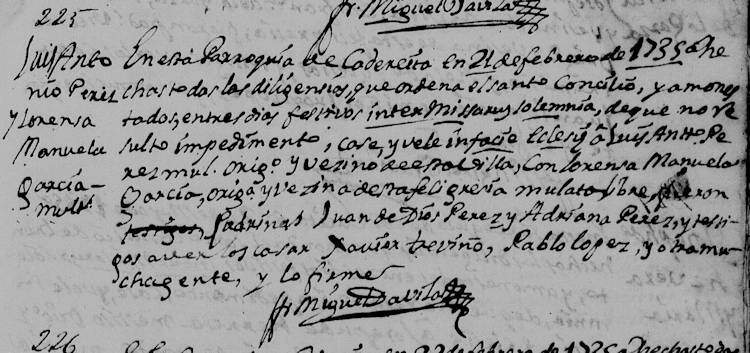 fr. Miguel Davila
225
Luis Anto
nio Perez
y Lorensa
Manuela
Garcia
mult
En esta Parroquia de Cadereita en 21 de febrero de 1735 a he
chas todas las diligensias, que ordena el santo Concilio, y amones
tados, entres dias festivos inter Missarum solemnia, de que no re
sulto impedimento, case, y vele in facie Eclesiȩ â Luis Anto. Pe
rez mul. orig.o y vezino de esta Villa, Con Lorensa Manuela
Garcia, orig.a y vezina desta feligreria mulata libre, fueron
testigos, Padrinos Juan de Dios Perez y Adriana Perez, y testi
gos a verlos casar Xavier treviño, Pablo lopez, y otra mu
cha gente, y lo firme
fr. Miguel Davila
226
en 22 de febrero de 1735 a hechas todas